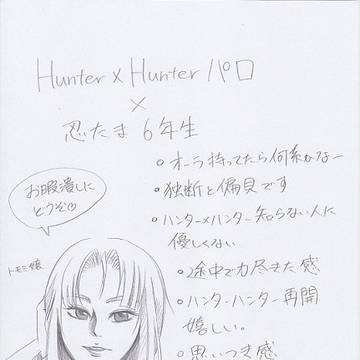 Hunter×Hunterパロ
×
忍たま6年生
・オーラ持ってたら何系かなー
・独断と偏見です
・ハンター×ハンター知らない人に
優しくない
・途中で力尽きた感
・ハンターハンター再開
嬉しい。
・思いつき感
お暇潰しに
どうぞ
トモミ嬢